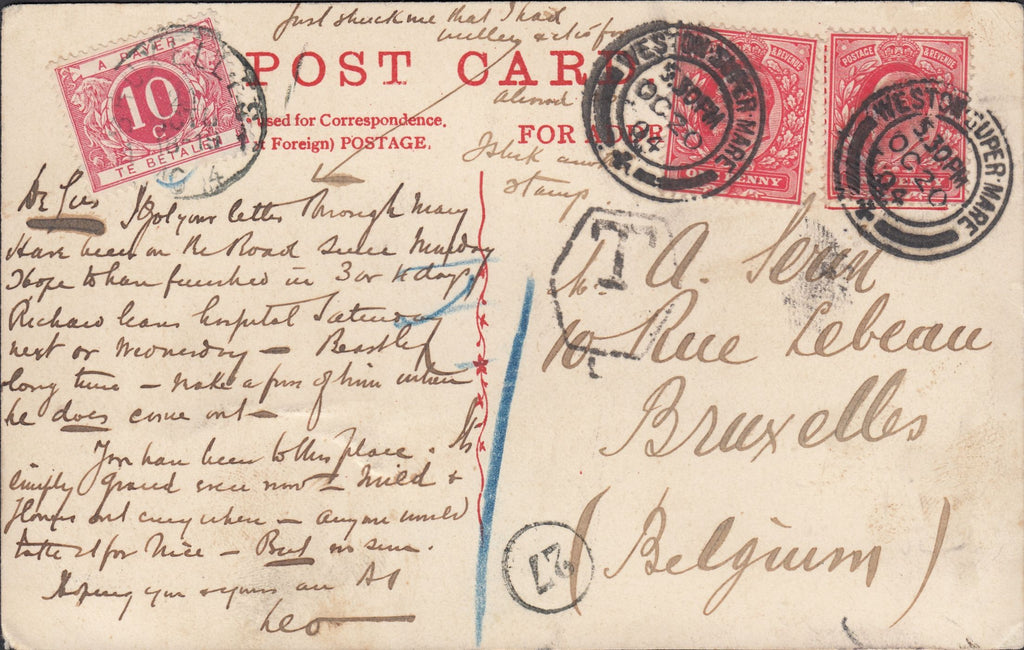 Just struck me that I had
POST CARD
abroad
I stick another
stamp
used for Correspondence,
& Foreign) POSTAGE.
FOR ADDR
A PAYER
10
C
TE BETALEN
WESTON-SUPER-MARE
5 30PM
OC 20
04
ONE PENNY
POSTAGE & REVENUE
WESTON-SUPER-MARE
5 30PM
OC 20
04
PENNY
T
De Gus I got your letter through Mary
Have been on the Road since Monday
I hope to have finished in 3 or 4 days
Richard leaves hospital Saturday
next or Wednesday — Beastly
long time — make a fuss of him when
he does come out —
You have been to this place. Its
simply grand even now — Mild &
flowers out everywhere — anyone would
take it for Nice — But no sun.
Hoping you & yours are A1
Leo
A.
10 Rue Lebeau
Bruxelles
(Belgium)
27